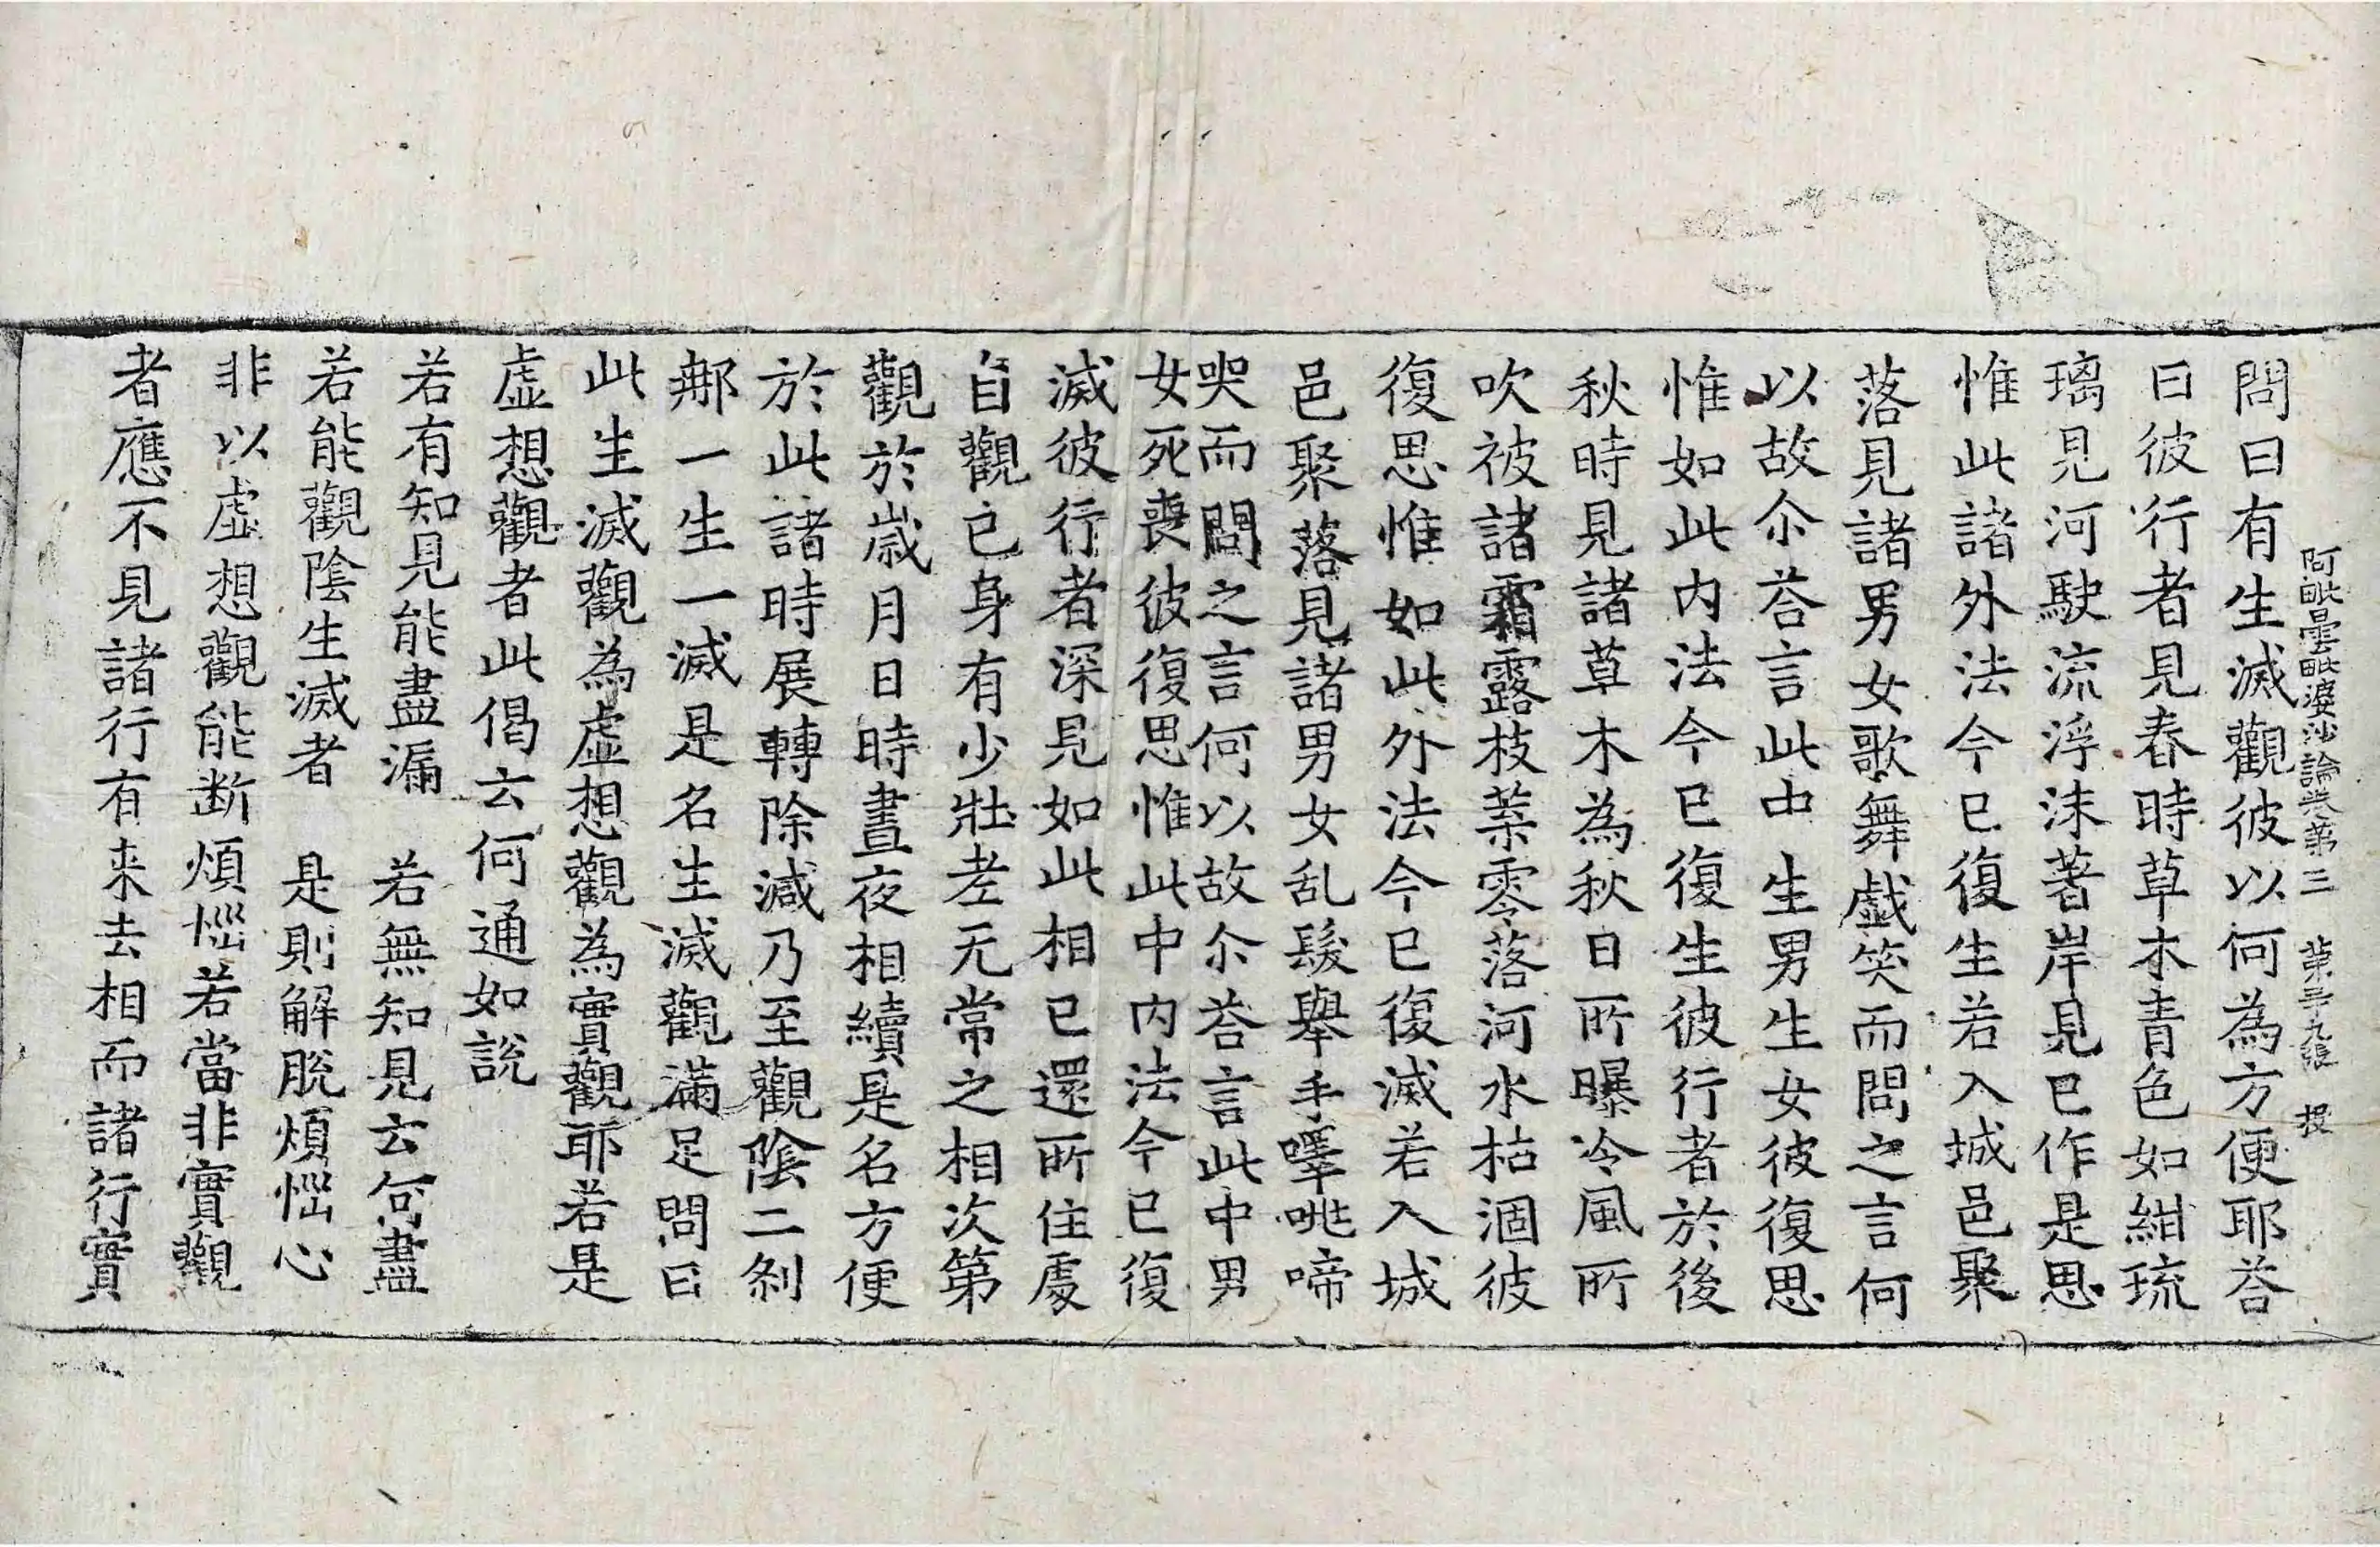 阿毗曇毗婆沙論卷第三 第三十九張 投
問曰有生滅觀彼以何為方便耶荅
曰彼行者見春時草木青色如紺琉
璃見河駛流浮沫著岸見已作是思
惟此諸外法今已復生若入城邑聚
落見諸男女歌舞戱笑而問之言何
以故尒荅言此中生男生女彼復思
惟如此内法今已復生彼行者於後
秋時見諸草木為秋日所曝冷風所
吹被諸霜露枝葉零落河水枯涸彼
復思惟如此外法今已復滅若入城
邑聚落見諸男女乱髮舉手嘷咷啼
哭而問之言何以故尒荅言此中男
女死喪彼復思惟此中内法今已復
滅彼行者深見如此相已還所住處
自觀已身有少壯老无常之相次第
觀於歳月日時晝夜相續是名方便
於此諸時展轉除減乃至觀陰二刹
那一生一滅是名生滅觀滿足問曰
此生滅觀為虛想觀為實觀耶若是
虛想觀者此偈云何通如說
若有知見能盡漏　若無知見云何盡
若能觀陰生滅者　是則解脫煩惱心
非以虛想觀能断煩惱若當非實觀
者應不見諸行有来去相而諸行實